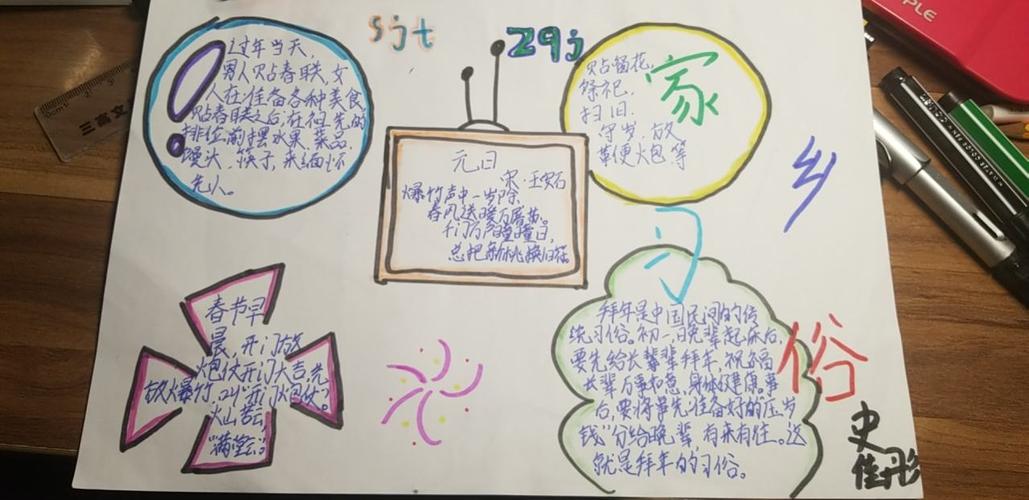 sjt
zqj
过年当天，
男人贴春联，女
人在准备各种美食
贴春联之后，在祖先的
排位前摆水果、菜品、
馒头、筷子，来缅怀
先人。
元日
宋·王安石
爆竹声中一岁除，
春风送暖入屠苏。
千门万户曈曈日，
总把新桃换旧符。
贴窗花，
祭祀，
扫旧，
守岁，放
鞭火包等
家
乡
习
俗
春节早
晨，开门放
炮仗开门大吉，先
放火暴竹，叫“开门火包仗”。
火山
“满堂
拜年是中国民间的传
统习俗。初一，晚辈起床后，
要先给长辈拜年，祝福
长辈万事如意，身体健康。
后，要将事先准备好的“压岁
钱”分给晚辈，有来有往。这
就是拜年的习俗。
史
佳彤
PLE